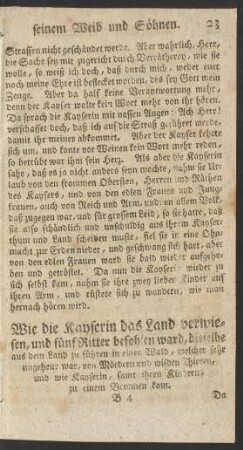 seinem Weib und Söhnen. 23
Strassen nicht geschändet werde. Aber wahrlich, Herr,
die Sache sey mir zugericht durch Verrätherey, wie sie
wolle, so weiß ich doch, daß durch mich, weder eure
noch meine Ehre ist beflecket worden, deß sey Gott mein
Zeuge. Aber da half keine Verantwortung mehr,
denn der Kayser wolte kein Wort mehr von ihr hören.
Da sprach die Kayserin mit nassen Augen: Ach Herr!
verschaffet doch, daß ich auf die Straß geführet werde,
damit ihr meiner abkommet. Aber der Kayser kehrte
sich um, und konte vor Weinen kein Wort mehr reden,
so betrübt war ihm sein Herz. Als aber die Kayserin
sahe, daß es ja nicht anders seyn mochte, nahm sie Ur-
laub von den frommen Obersten, Herren und Räthen
des Kaysers, und von den edlen Frauen und Jung-
frauen, auch von Reich und Arm, und an allem Volk,
daß zugegen war, und für grossem Leid, so sie hatte, daß
sie also schändlich und unschuldig aus ihrm Kayser-
thum und Land scheiden muste, fiel sie in eine Ohn-
macht zur Erden nieder, und geschwang sich hart, aber
von den edlen Frauen ward sie bald wieder aufgeho-
ben und getröstet. Da nun die Kayserin wieder zu
sich selbst kam, nahm sie ihre zwey lieber Kinder auf
ihren Arm, und rüstete sich zu wandern, wie man
hernach hören wird.
Wie die Kayserin das Land verwie-
sen, und fünf Ritter befohlen ward, dieselbe
aus dem Land zu führen in einen Wald, welcher sehr
ungeheur war, von Mördern und wilden Thieren,
und wie Kayserin, samt ihren Kindern,
zu einem Brunnen kam.
B 4 Da